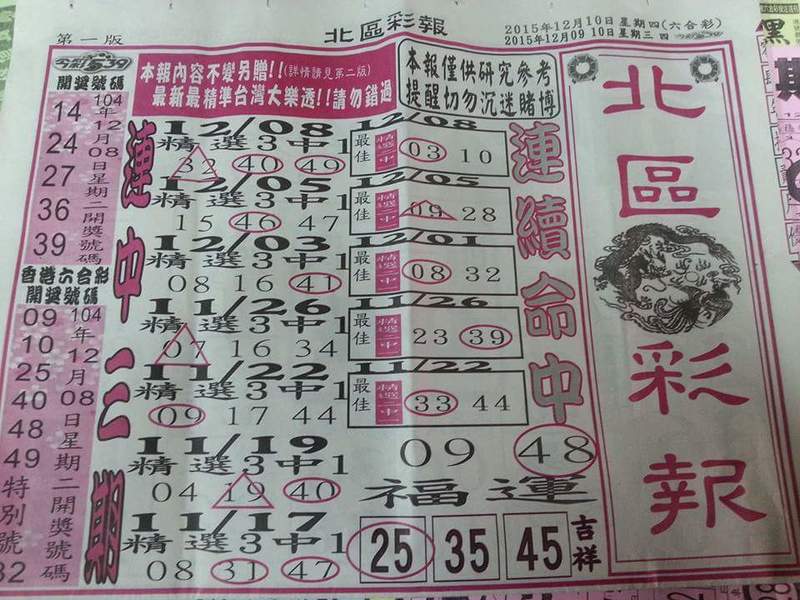 第一版
北區彩報
2015年12月10日 星期四(六合彩)
2015年12月09 10日星期三 四
今彩539
開獎號碼
14
24
27
36
39
104年12月08日星期二開獎號碼
香港六合彩
開獎號碼
09
10
25
40
48
49
特別號
32
104年12月08日星期二開獎號碼
本報內容不變另贈!!(詳情請見第二版)
最新最精準台灣大樂透!!請勿錯過
本報僅供研究參考
提醒切勿沉迷賭博
連中三期
12/08
精選3中1
32 40 49
12/05
精選3中1
15 46 47
12/03
精選3中1
08 16 41
11/26
精選3中1
07 16 34
11/22
精選3中1
09 17 44
11/19
精選3中1
04 19 40
11/17
精選3中1
08 31 47
12/08
最佳 精選二中一 03 10
12/05
最佳 精選二中一 09 28
12/01
最佳 精選二中一 08 32
11/26
最佳 精選二中一 23 39
11/22
最佳 精選二中一 33 44
09 48
福運
25 35 45
吉祥
連續命中
北區彩報